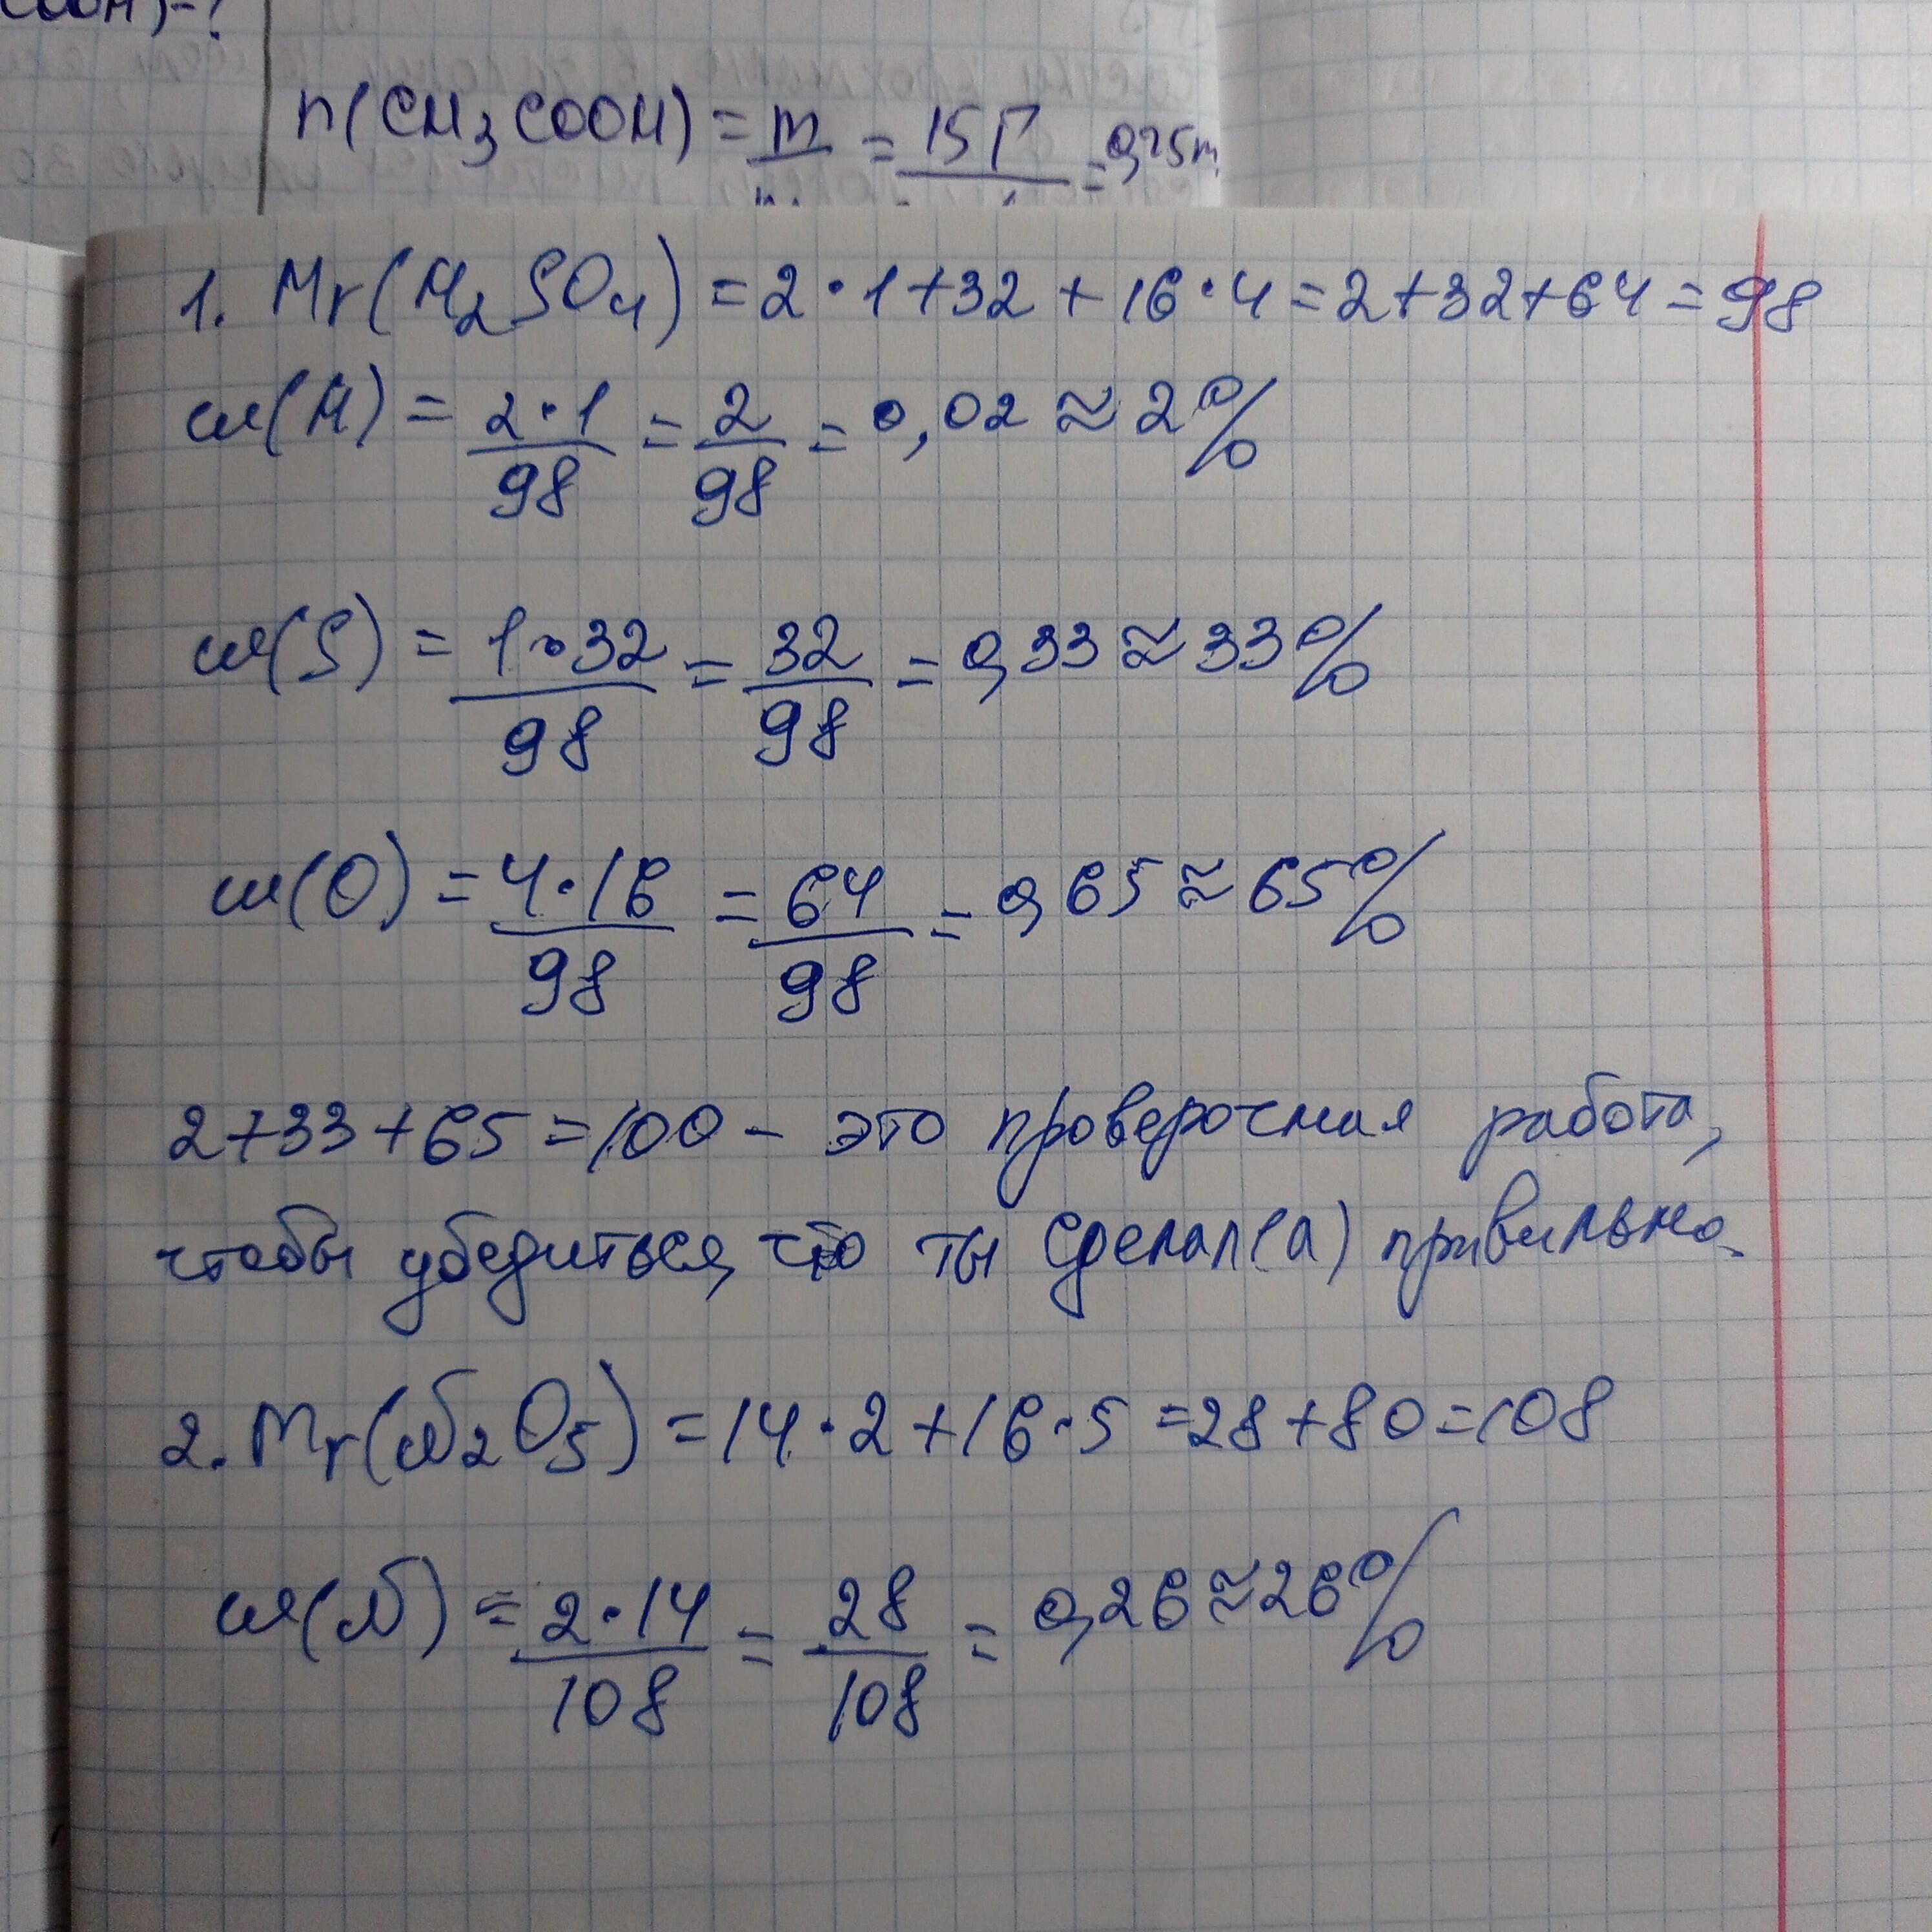 n(CH₃COOH) = m = 15г = 0,25m
1. Mr(H₂SO₄) = 2·1+32+16·4=2+32+64=98
ω(H) = 2·1/98 = 2/98 = 0,02 ≈ 2%
ω(S) = 1·32/98 = 32/98 = 0,33 ≈ 33%
ω(O) = 4·16/98 = 64/98 = 0,65 ≈ 65%
2+33+65=100 – это проверочная работа,
чтобы убедиться, что ты сделал(а) правильно.
2. Mr(N₂O₅) = 14·2+16·5=28+80=108
ω(N) = 2·14/108 = 28/108 = 0,26 ≈ 26%